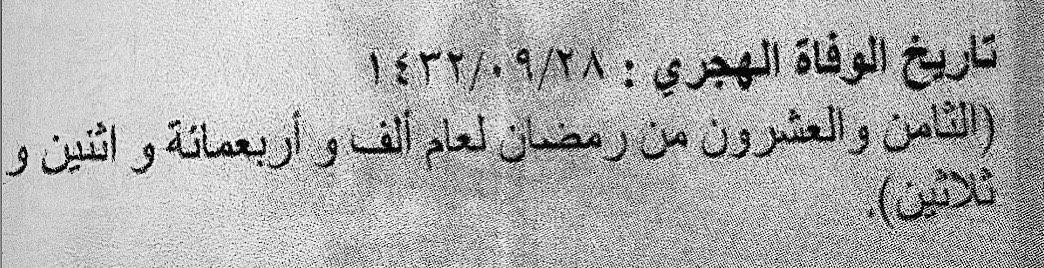 تاريخ الوفاة الهجري : ١٤٣٢/٠٩/٢٨
(الثامن والعشرون من رمضان لعام ألف و أربعمائة و اثنين و
ثلاثين).